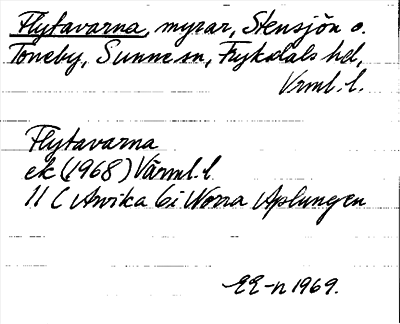 Flytavarna, myrar, Stensjön o.
Toneby, Sunne sn, Fryksdals hd,
Vrml. l.
Flytavarna
ek (1968) Värml. l.
11 C Arvika 6i Norra Aplungen
EE-n 1969.